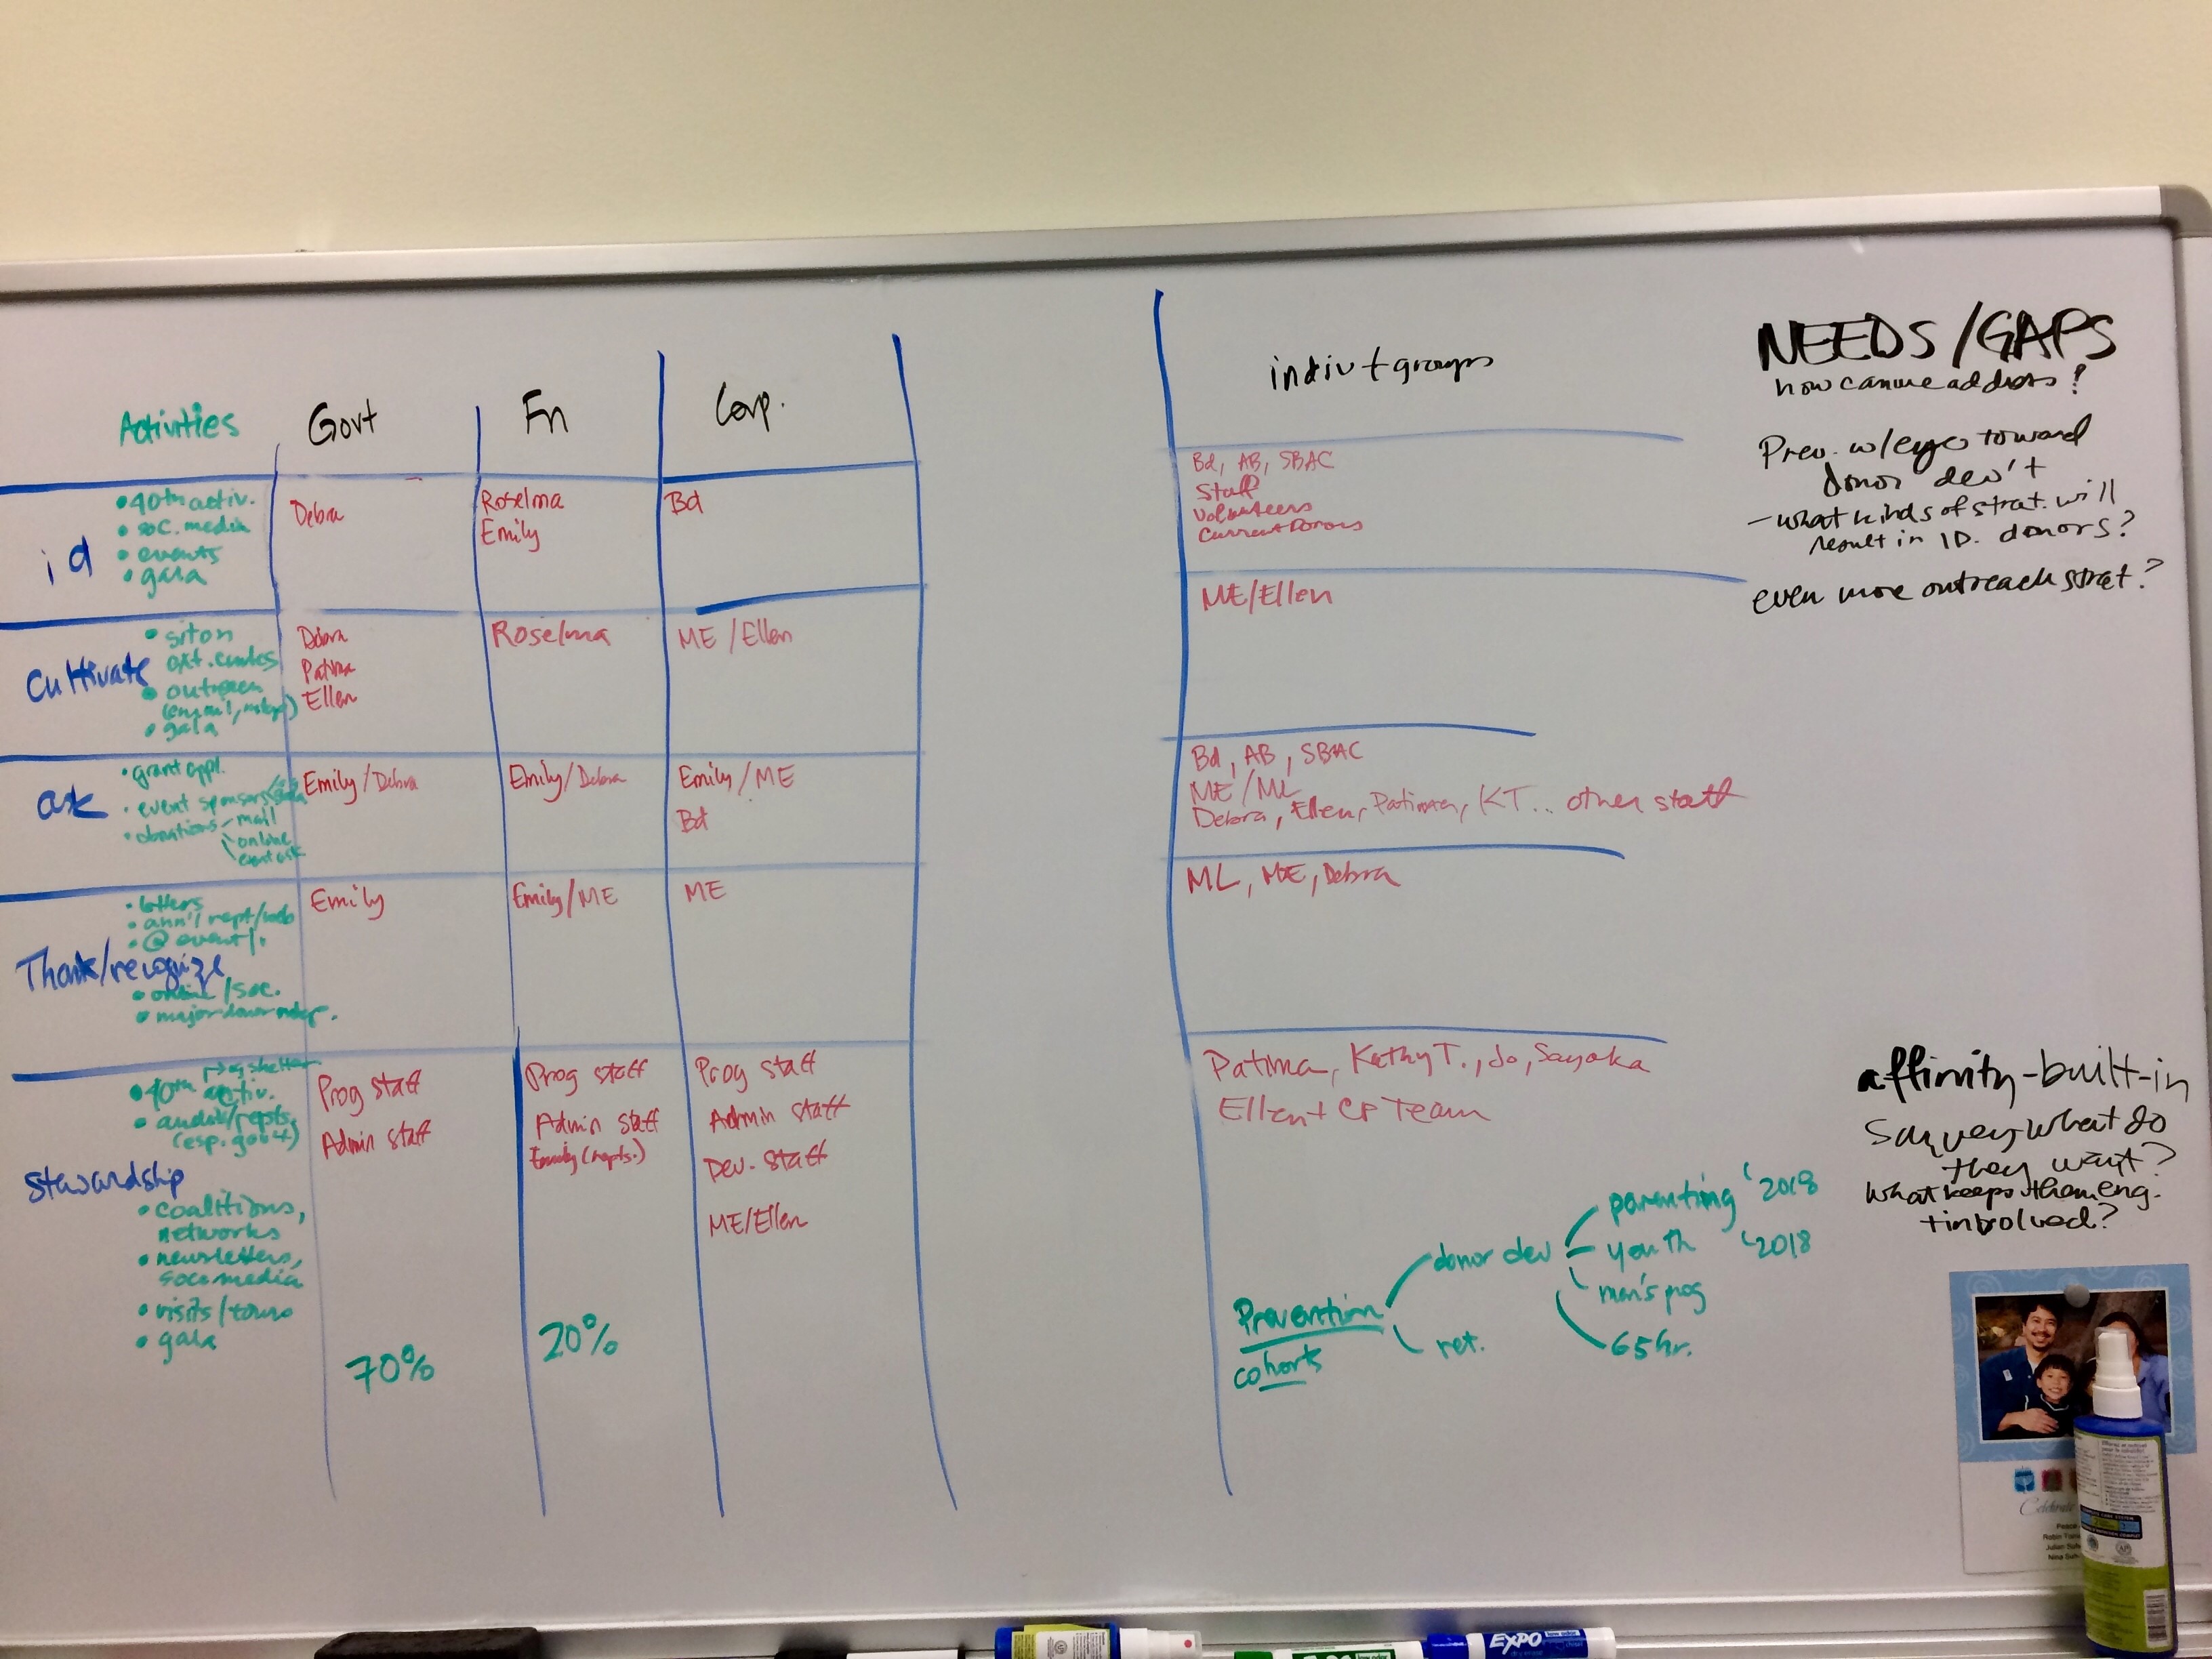 Activities
Govt
Fn
Corp.
indiv + groups
NEEDS/GAPS
how can we address?
id
• 40th activ.
• soc. media
• events
• gala
Debra
Roselma
Emily
Bd
Bd, AB, SBAC
Staff
Volunteers
Current Donors
Prev. w/eye toward
donor dev't
- what kinds of strat. will
result in ID. donors?
even more outreach strat?
Cultivate
• sit on
ext. cmtes
• outreach
• gala
Debra
Patima
Ellen
Roselma
ME / Ellen
ME/Ellen
ask
• grant appl.
• event sponsors
• donations - mail
online
event ask
Emily/Debra
Emily/Debra
Emily/ME
Bd
Bd, AB, SBAC
ME/ML
Debora, Ellen, Patima, KT... other staff
Thank/recognize
• letters
• ann'l rept/web
• @ event/.
• online/soc.
• major donor
Emily
Emily/ME
ME
ML, ME, Debra
Stewardship
shelter
• 40th activ.
• audit/repts.
(esp. gov't)
• coalitions,
networks
• newsletters,
soc. media
• visits/tours
• gala
Prog staff
Admin staff
70%
Prog staff
Admin staff
Emily (repts.)
20%
Prog staff
Admin staff
Dev. staff
ME/Ellen
Patima, Kathy T., Jo, Sayaka
Ellen + CP Team
Prevention
cohorts
donor dev
ret.
parenting '2018
youth '2018
men's prog
65 hr.
affinity-built-in
Survey what do
they want?
What keeps them eng.
+ involved?
Celebrate
Peace
Robin
Julian
Nina
EXPO
low odor